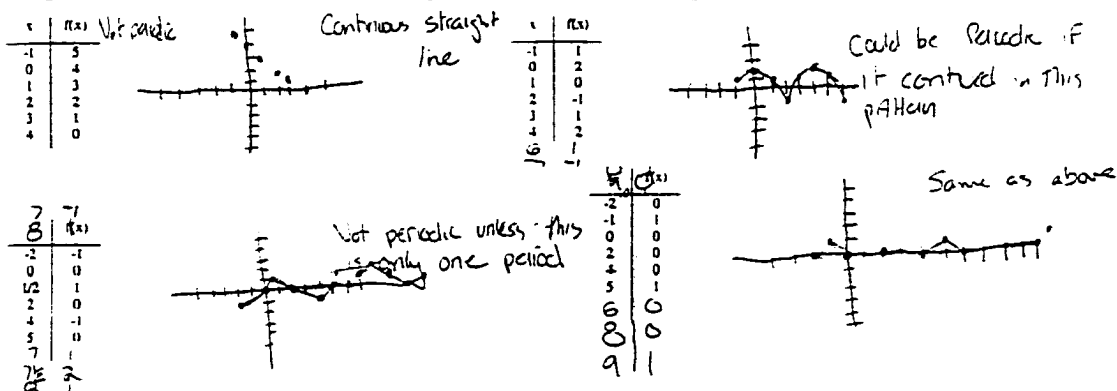 x f(x) Not periodic
-1 5
0 4
1 3
2 2
3 1
4 0
Continuous straight
line
x f(x)
-1 1
0 2
1 0
2 -1
3 1
4 2
6 1
-1
Could be Periodic if
it contued in this
pattern
7 -1
8 f(x)
-2 -1
0 0
1/2 1
2 0
4 -1
5 0
7 1
7½ 2
Not periodic unless this
is only one period
f(x)
-2 0
-1 1
0 0
2 0
4 0
5 1
6 0
8 0
9 1
Same as above